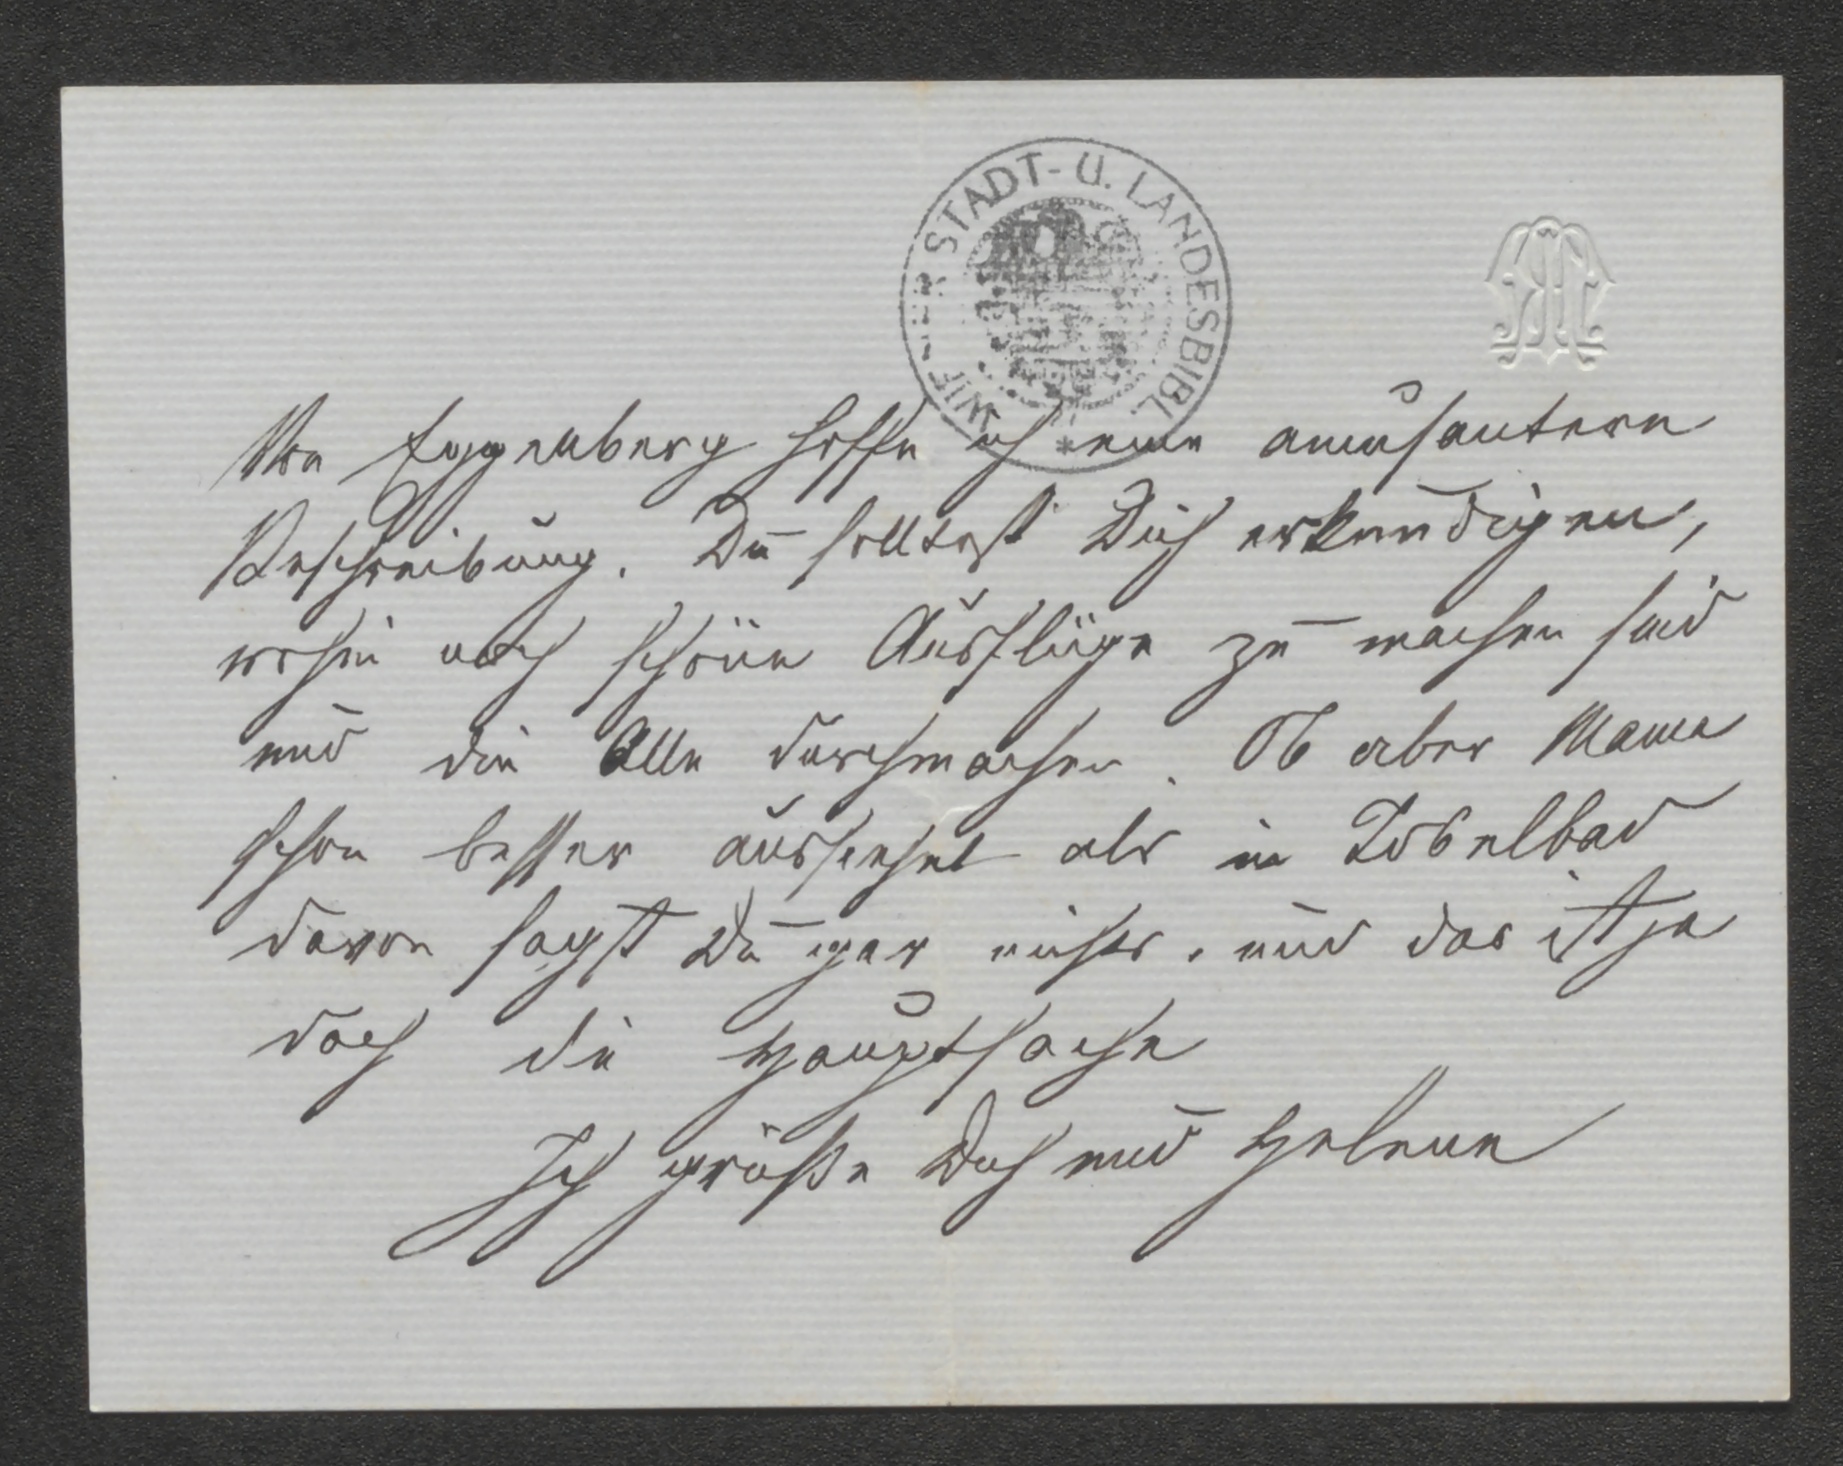 WIENER STADT- U. LANDESBIBL.
Von Eggenberg hoffe ich eine amüsantere
Beschreibung. Du solltest Dich erkundigen,
wohin noch schöne Ausflüge zu machen sind
und die Alle durchmachen. Ob aber Mama
schon besser aussiehet als in Tobelbad
davon sagst Du gar nichts. und das ist ja
doch die Hauptsache
Ich grüße Dich und Helene